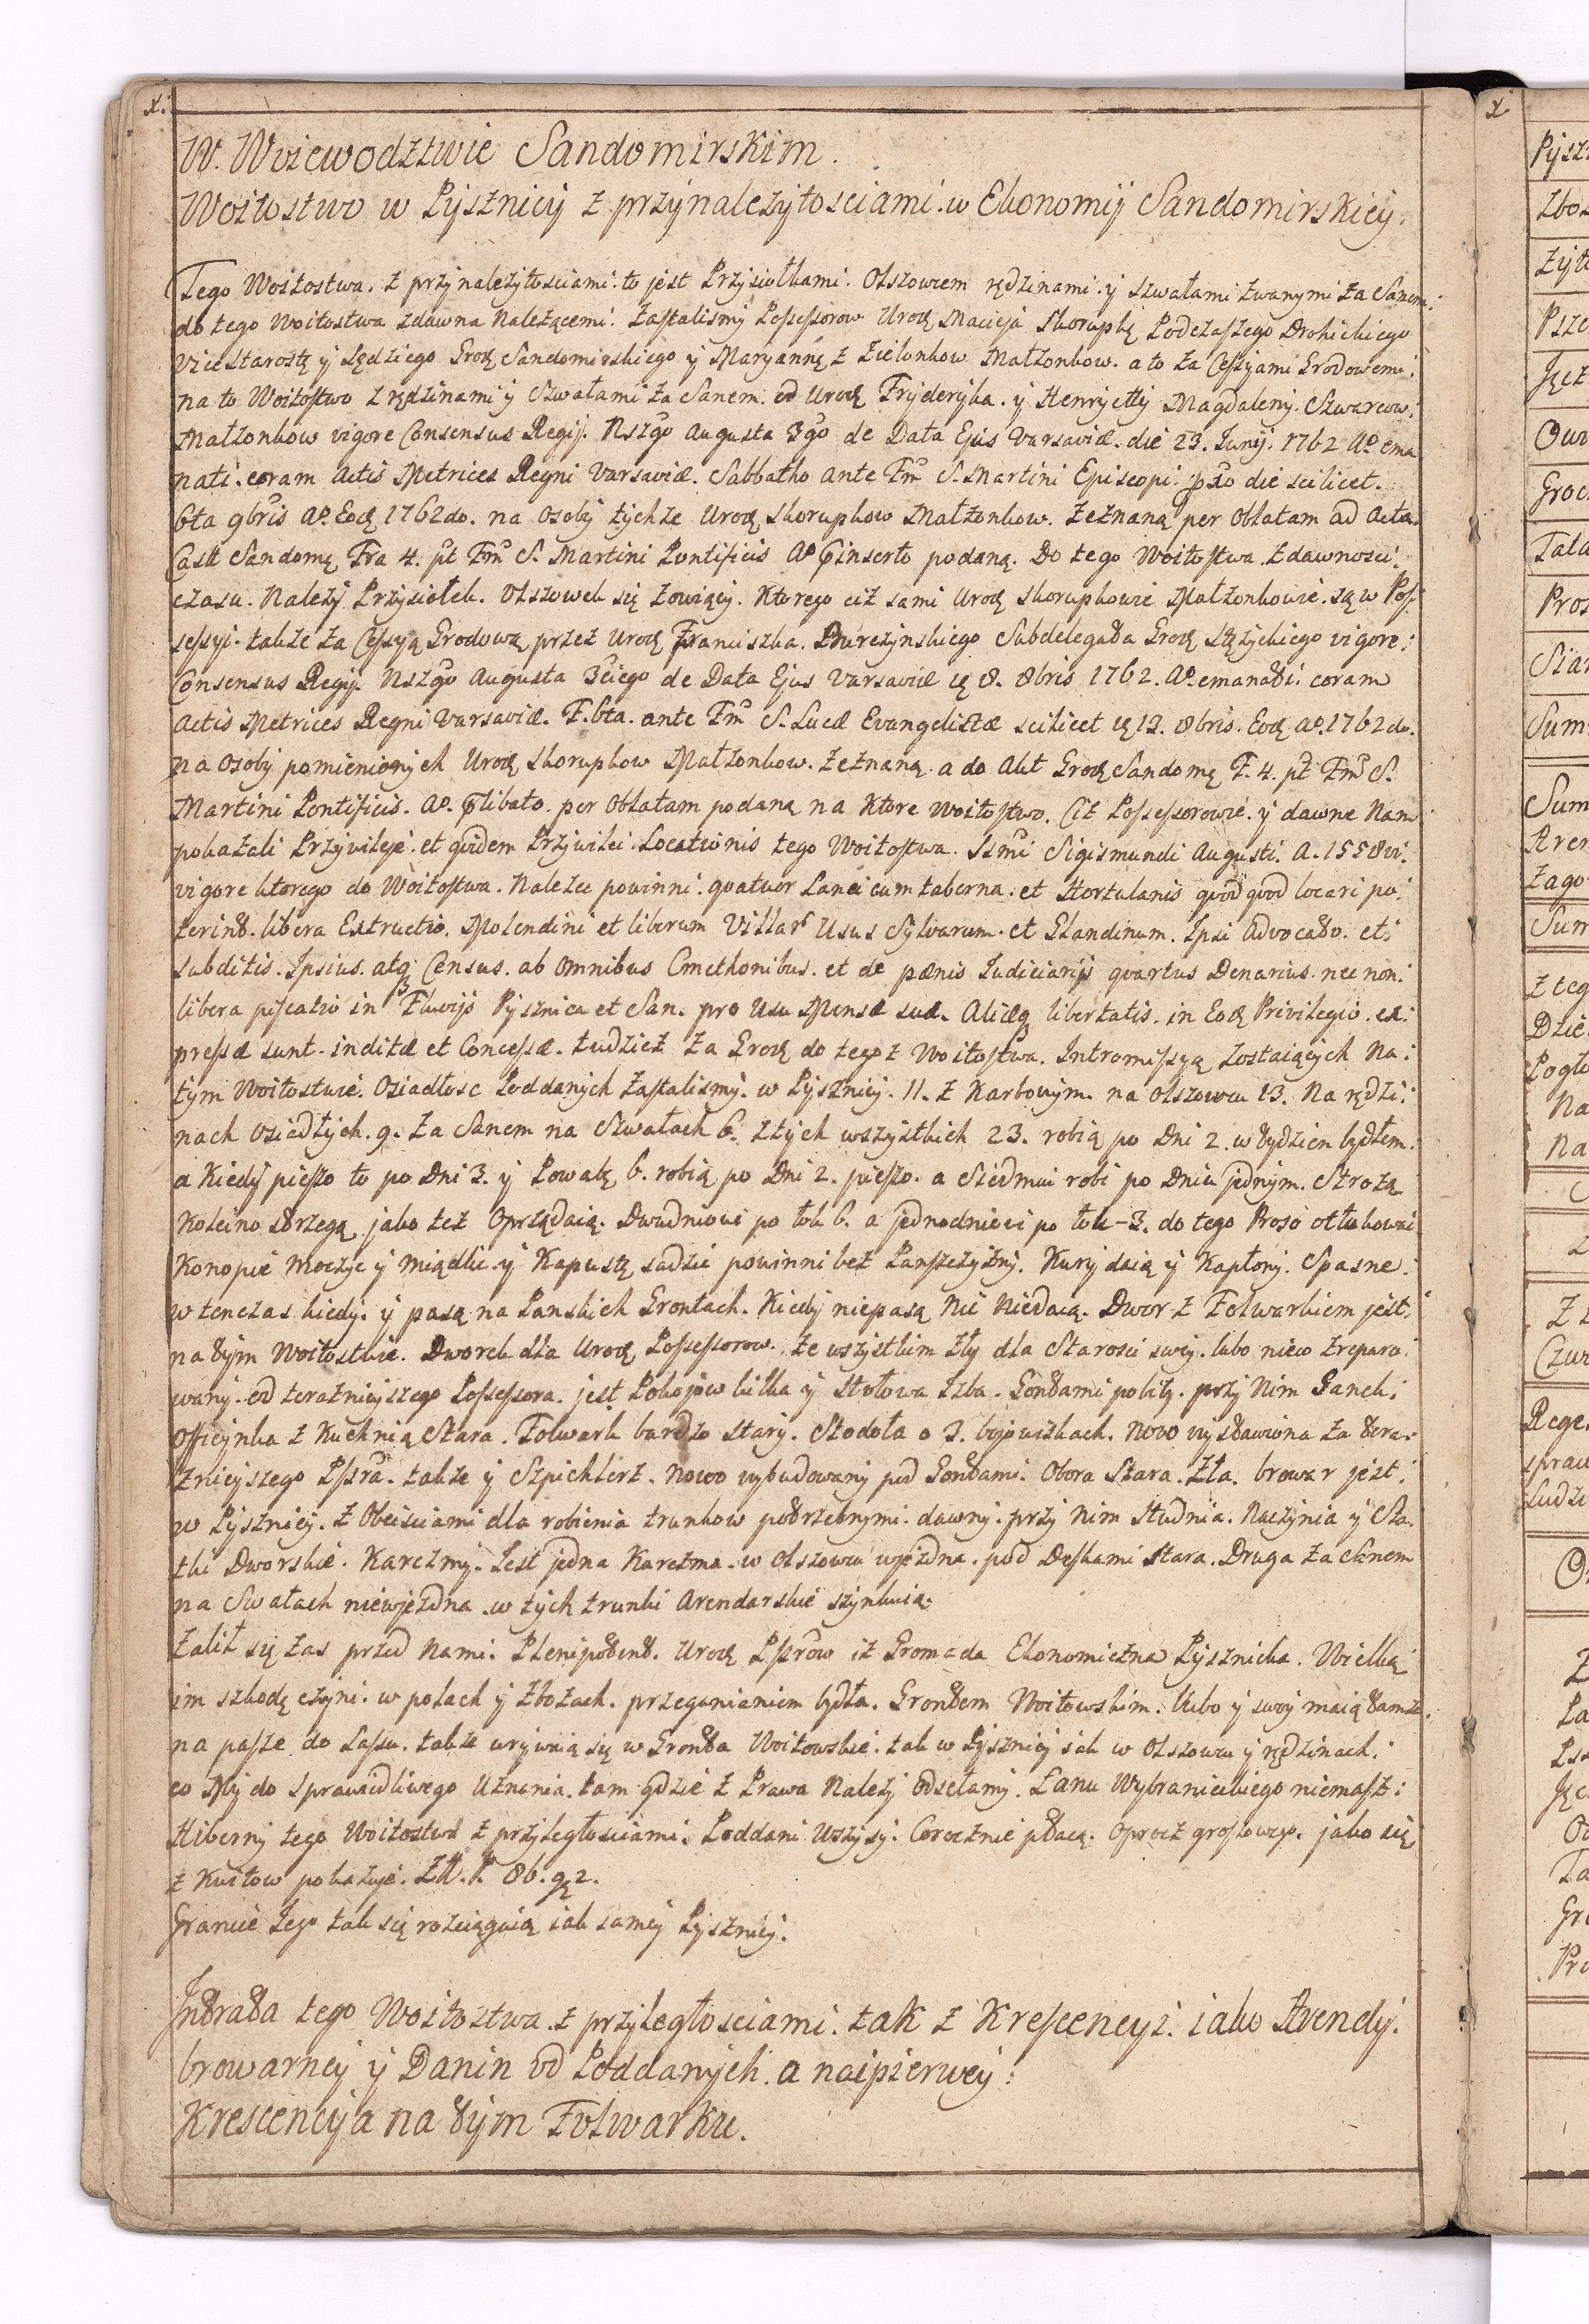 x.
W. Woiewodztwie Sandomirskim.
Woitostwo w Pysznicy z przynalezytosciami w Ekonomij Sandomirskiey.
Tego Woitostwa. z przynalezytosciami. to jest Przysiołkami. Olszowem rędzinami. y Szwałami zwanymi za Sanem.
do tego Woitostwa zdawna Należącemi. Zastalismy Possessorow Urodz Macieja Skorupkę Podczaszego Drohickiego
Vice Starostę y Sędziego Grodz Sandomirskiego y Maryannę z Zielonkow Małzonkow. a to za Cessyami Grodowemi
na to Woitostwo z rędzinami y Szwałami za Sanem. od Urodz Fryderyka. y Henryetty Magdaleny. Szwarcow.
Małzonkow vigore Consensus Regij. Nszgo Augusta 3go de Data Ejus Varsaviæ. die 23. Junij. 1762 Ao ema
nati. coram Actis Metrices Regni Varsaviæ. Sabbatho ante Fm S. Martini Episcopi. pxo die scilicet.
6ta 9bris Ao. Eod 1762do. na Osoby tychze Urodz Skorupkow Małzonkow. zeznaną per Oblatam ad Acta
Cast Sandom Fra 4. pt Fm S. Martini Pontificis Ao inserto podaną. Do tego Woitostwa. z dawnosci
czasu. Należy Przysiołek. Olszowek się zowiący. Ktorego ciż sami Urodz Skorupkowie Małzonkowie. są w Pos
sessyi. także za Cessyą Grodową przez Urodz Franciszka. Burczynskiego Subdelegata Grodz Stężyckiego vigore
Consensus Regij. Nszgo Augusta 3ciego de Data Ejus Varsaviæ d 8. 8bris 1762. Ao. emanati. coram
Actis Metrices Regni Varsaviæ. F. 6ta. ante Fm S. Lucæ Evangelistæ scilicet d 13. 8bris. Eod. ao. 1762do.
na Osoby pomienionych Urodz Skorupkow Małzonkow. zeznaną. a do Akt Grodz Sandom F. 4. pt Fm S.
Martini Pontificis. Ao. libato. per Oblatam podaną na Ktore Woitostwo. Ciż Possessorowie. y dawne Nam
pokazali Przywileje. et quidem Przywilei. Locationis tego Woitostwa. Ssmi Sigismundi Augusti. A. 1558vi.
vigore ktorego do Woitostwa. Należec powinni. quatuor Lanei cum taberna. et Hortulanis quod quod locari po
terint. libera Extructio. Molendini et liberum Usus Sylvarum. et Glandinum. Ipsi Advocato. et
subditis. Ipsius. atq Census. ab Omnibus Cmethonibus. et de pænis Judiciarijs quartus Denarius. nec non.
libera piscatio in Fluvijs Pysznica et San. pro Usu Mensæ suæ. Aliæq libertatis. in Eod Privilegio. ex
pressæ sunt. inditæ et Concessæ. tudzież za Grodz do tegoż Woitostwa. Intromissyą zostaiących Na
tym Woitostwie. Osiadłosc Poddanych zastalismy. w Pysznicy. 11. z Karbowym. na Olszowcu 13. Na rędzi
nach osiadłych. 9. za Sanem na Szwałach 6. z tych wszystkich 23. robią po Dni 2. w tydzien bydłem.
a Kiedy pieszo to po Dni 3. y 6. robią po Dni 2. pieszo. a Siedmiu robi po Dniu jednym. Strożą
Koleino strzegą jako też Oprzędaią. Dwudniowi po łok 6. a jednodniowi po łok-3. do tego Proso otłukowac
Konopie Moczyc y Miądlic y Kapustę sadzic powinni bez Panszczyzny. Kury daią y Kapłony. Spasne
wtenczas kiedy. y pasą na Panskich Gruntach. Kiedy niepasą Nic Niedaią. Dwor z Folwarkiem jest.
na tym Woitostwie. Dworek dla Urodz Possessorow. ze wszystkim zły dla Starosci swey. lubo nieco zrepara
wany. od teraznieyszego Possessora. jest Pokojow kilka y Stołowa Izba. Gontami pobity. przy Nim Ganek
Officynka z Kuchnią Stara. Folwark bardzo Stary. Stodoła o 3. bojowiskach. Nowo wystawiona za tera
znieyszego Pssra. także y Szpichlerz. Nowo wybudowany pod Gontami. Obora Stara. zła. browar jest
w Pysznicy. z Obeisciami dla robienia trunkow potrzebnymi. dawny. przy Nim Studnia. Naczynia y Sta
tki Dworskie. Karczmy. Jest jedna Karczma. w Olszowcu wjezdna. pod Deskami Stara. Druga za Sanem
na Swałach niewjezdna. w tych trunki Arendarskie szynkuią.
Zalił się zas przed Nami. Plenipotent. Urodz Pssrow iż Gromada Ekonomiczna Pysznicka. Wielką
im szkodę czyni. w polach y zbożach. przeganianiem bydła. Grontem Woitowskim. lubo y swoy maią tamże
na pasze do Lassu. także urywaią się w Gronta Woitowskie. tak w Pysznicy iak w Olszowcu y rędzinach.
co My do sprawiedliwego Uznania. tam gdzie z Prawa Należy odsełamy. Łanu Wybranieckiego niemasz.
Hiberny tego Woitostwa z przyległosciami. Poddani Wszyscy. Corocznie płacą. Oprocz groszowego. jako się
z Kwitow pokazuje. Zł. P. 86. g 2.
Granice Jego tak się rozciągaią iak samey Pysznicy.
Intrata tego Woitostwa z przyległosciami. tak z Krescencyi. iako Arendy.
browarney y Danin od Poddanych. a naipierwey:
Krescencyja na tym Folwarku.
x
Pysz
Zboż
Żyt
Psze
Jęcz
Owi
Groc
Tata
Pros
Sian
Sum
Sum
Aren
Sum
Z teg
Dzie
Na
Na
Rege
spraw
Ludzi